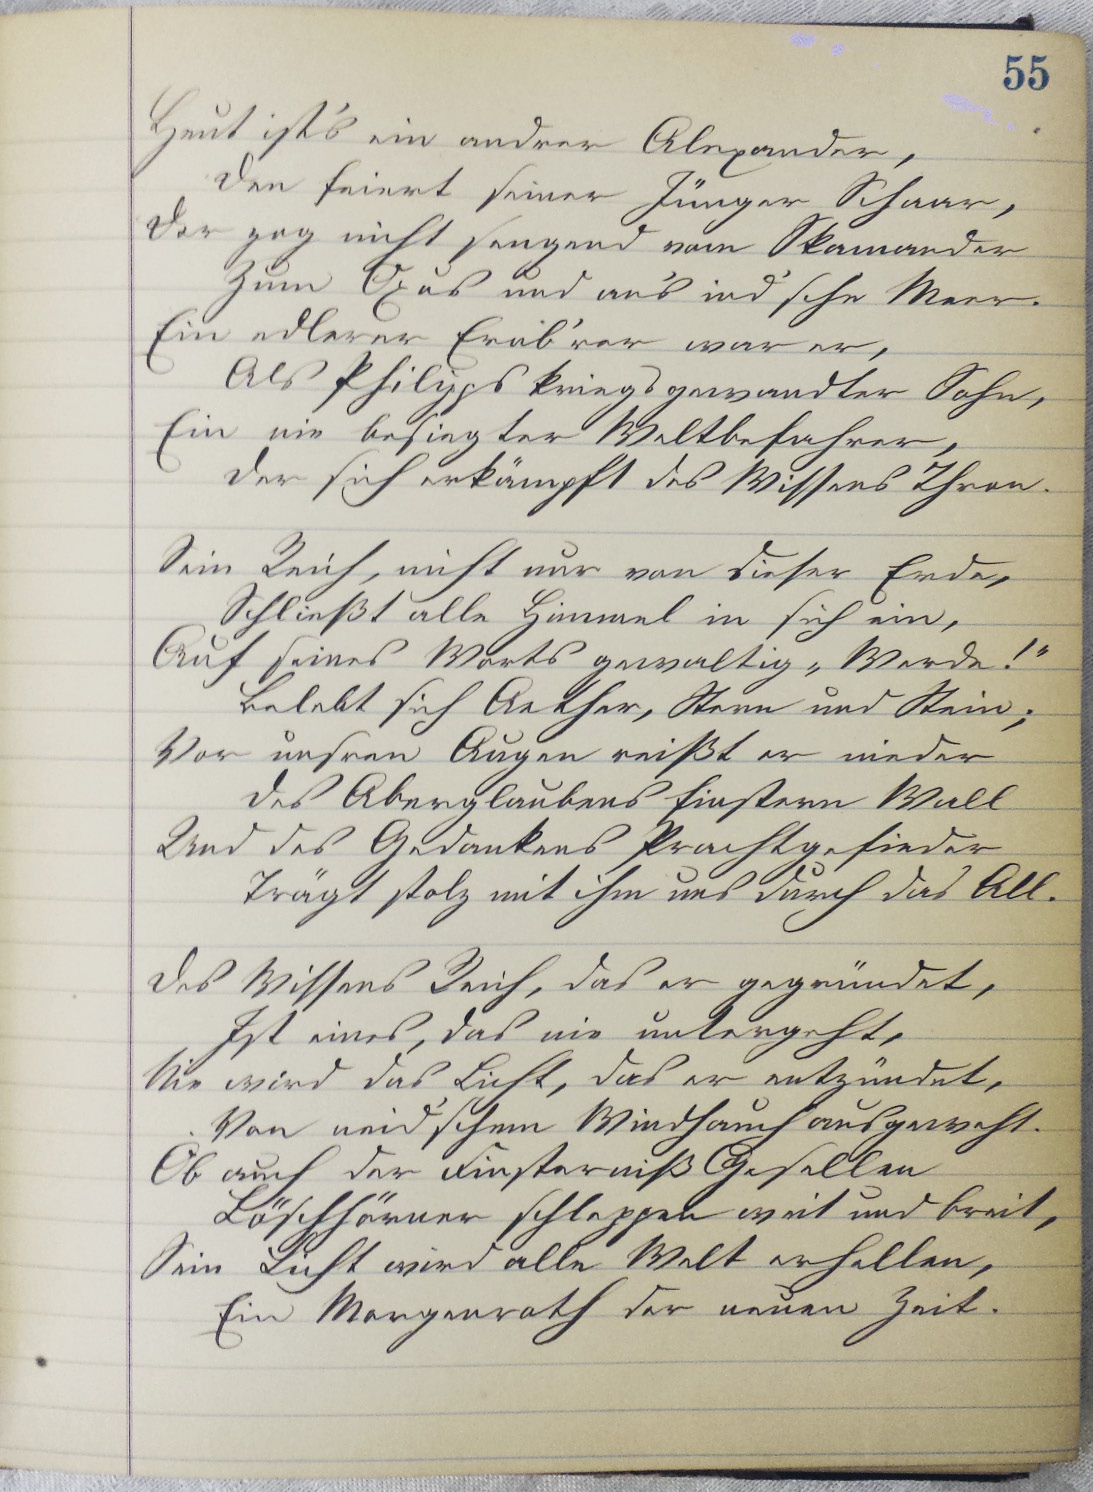 55
Heut ist's ein andrer Alexander,
Den feiert seiner Jünger Schaar,
Der zog nicht sengend vom Skamander
Zum Oxus und ans ind'sche Meer.
Ein edlerer Erob'rer war er,
Als Philipps kriegsgewandter Sohn,
Ein nie besiegter Weltbefahrer,
Der sich erkämpft des Wissens Thron.
Sein Reich, nicht nur von dieser Erde,
Schließt alle Himmel in sich ein,
Auf seines Worts gewaltig „Werde!"
Belebt sich Aether, Stern und Stein;
Vor unsren Augen reißt er nieder
Des Aberglaubens finstern Wall
Und des Gedankens Prachtgefieder
Trägt stolz mit ihm uns durch das All.
Des Wissens Reich, das er gegründet,
Ist eines, das nie untergeht,
Nie wird das Licht, das er entzündet,
Von neid'schem Windhauch ausgeweht.
Ob auch der Finsterniß Gesellen
Löschhörner schleppen weit und breit,
Sein Licht wird alle Welt erhellen,
Ein Morgenroth der neuen Zeit.